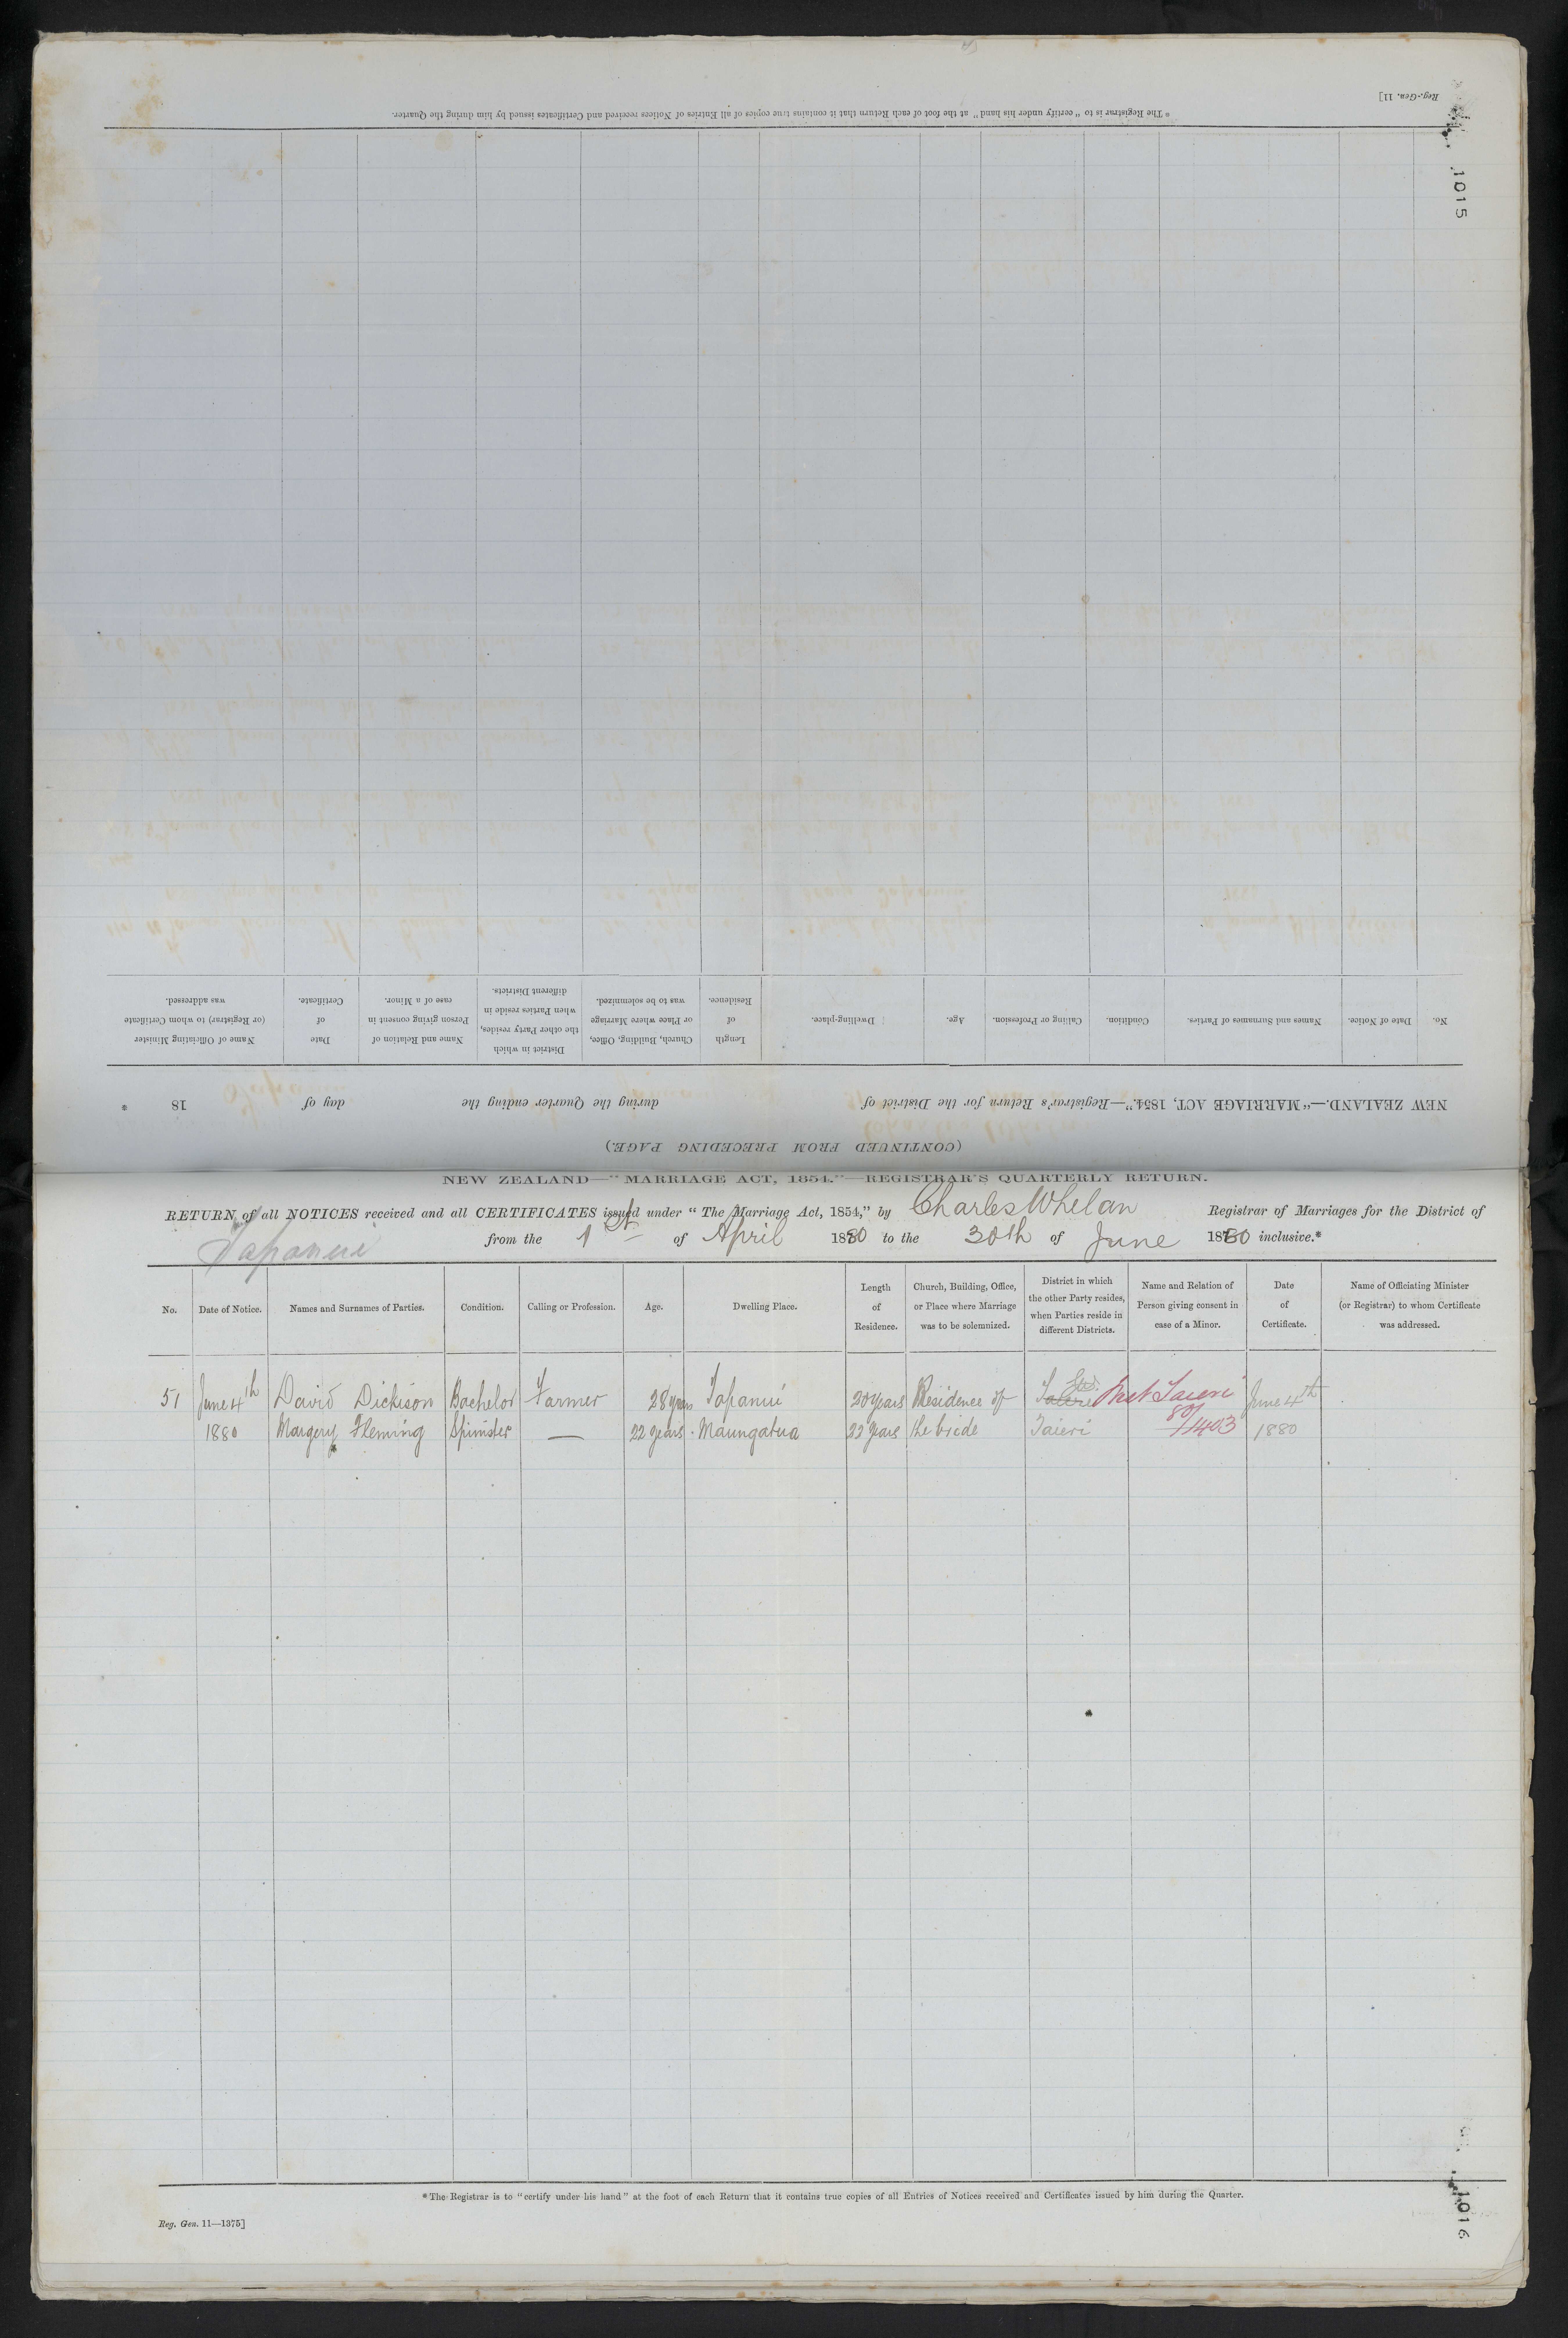 Reg.-Gen. 11]
1015
* The Registrar is to "certify under his hand" at the foot of each Return that it contains true copies of all Entries of Notices received and Certificates issued by him during the Quarter.
(CONTINUED FROM PRECEDING PAGE.)
NEW ZEALAND.—"MARRIAGE ACT, 1854."—Registrar's Return for the District of during the Quarter ending the day of 18
No. Date of Notice. Names and Surnames of Parties. Condition. Calling or Profession. Age. Dwelling-place. Length of Residence. Church, Building, Office, or Place where Marriage was to be solemnized. District in which the other Party resides, when Parties reside in different Districts. Name and Relation of Person giving consent in case of a Minor. Date of Certificate. Name of Officiating Minister (or Registrar) to whom Certificate was addressed.
NEW ZEALAND—"MARRIAGE ACT, 1854."—REGISTRAR'S QUARTERLY RETURN.
RETURN of all NOTICES received and all CERTIFICATES issued under "The Marriage Act, 1854," by Charles Whelan Registrar of Marriages for the District of
Tapanui from the 1st of April 1880 to the 30th of June 1880 inclusive.*
No. Date of Notice. Names and Surnames of Parties. Condition. Calling or Profession. Age. Dwelling Place. Length of Residence. Church, Building, Office, or Place where Marriage was to be solemnized. District in which the other Party resides, when Parties reside in different Districts. Name and Relation of Person giving consent in case of a Minor. Date of Certificate. Name of Officiating Minister (or Registrar) to whom Certificate was addressed.
51 June 4th David Dickison Bachelor Farmer 28 years Tapanui 20 years Residence of Taieri June 4th
1880 Margery Fleming Spinster — 22 years Maungatua 22 years the bride Taieri 80/1403 1880
* The Registrar is to "certify under his hand" at the foot of each Return that it contains true copies of all Entries of Notices received and Certificates issued by him during the Quarter.
Reg. Gen. 11—1375]
1016